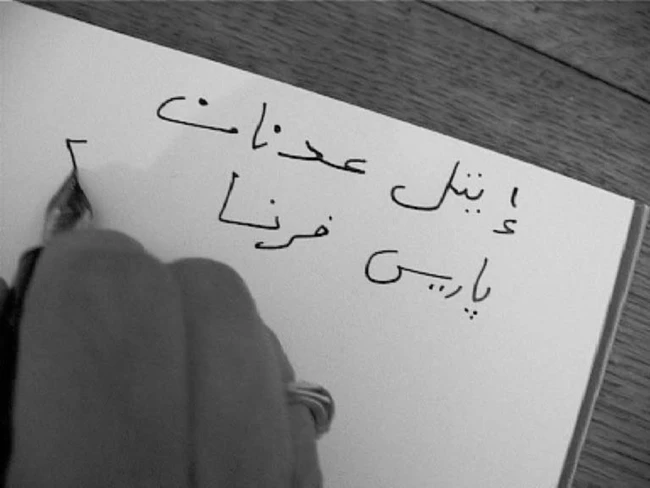 إيتل عدنان
پاريس فرنسا